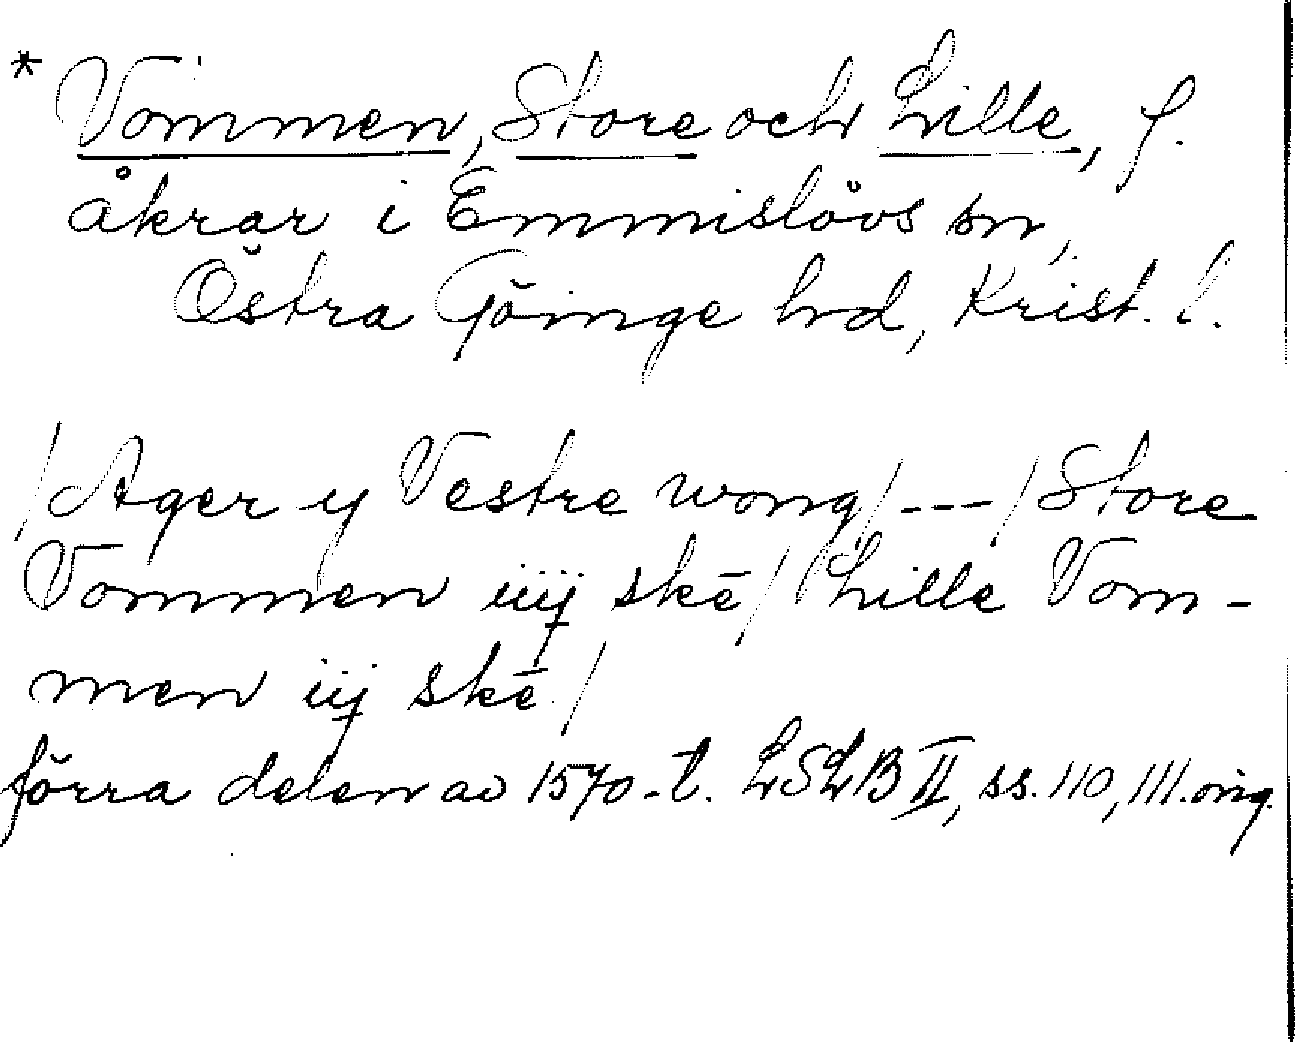 * Vommen, Store och Lille, f.
åkrar i Emmislövs sn,
Östra Göinge hd, Krist. l.
/Ager y Vestre wong/---/Store
Vommen iiij skē/Lille Vom-
men iij skē/
förra delen av 1570-t. LSLB II, ss. 110, 111. orig.